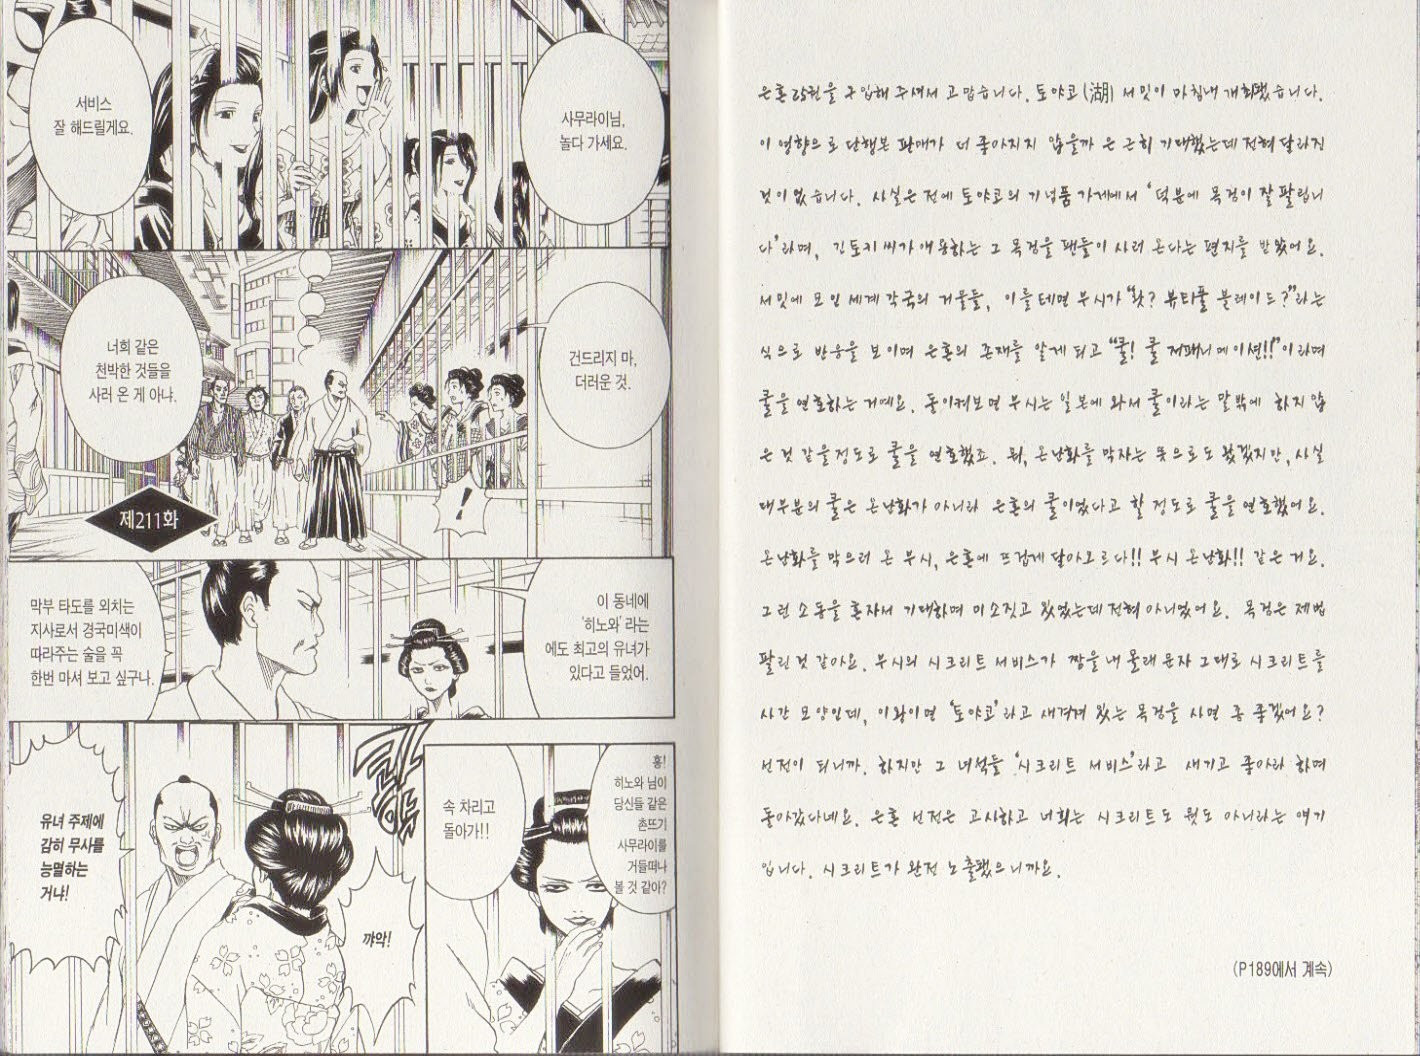 은혼 25권을 구입해 주셔서 고맙습니다. 토야코(湖) 서밋이 마침내 개최됐습니다.
이 영향으로 단행본 판매가 더 좋아지지 않을까 은근히 기대했는데 전혀 달라진
것이 없습니다. 사실은 전에 토야코의 기념품 가게에서 '덕분에 목검이 잘 팔립니
다'라며, 긴토키 씨가 애용하는 그 목검을 팬들이 사러 온다는 편지를 받았어요.
서밋에 모인 세계 각국의 거물들, 이를테면 부시가 "왓? 뷰티풀 블레이드?"라는
식으로 반응을 보이며 은혼의 존재를 알게 되고 "쿨! 쿨 저패니메이션!!"이라며
쿨을 연호하는 거예요. 돌이켜보면 부시는 일본에 와서 쿨이라는 말밖에 하지 않
은 것 같을 정도로 쿨을 연호했죠. 뭐, 온난화를 막자는 뜻으로도 왔겠지만, 사실
대부분의 쿨은 온난화가 아니라 은혼의 쿨이었다고 할 정도로 쿨을 연호했어요.
온난화를 막으러 온 부시, 은혼에 뜨겁게 달아오르다!! 부시 온난화!! 같은 거요.
그런 소동을 혼자서 기대하며 미소짓고 있었는데 전혀 아니었어요. 목검은 제법
팔린 것 같아요. 부시의 시크리트 서비스가 짬을 내 몰래 문자 그대로 시크리트를
사간 모양인데, 이왕이면 '토야코'라고 새겨져 있는 목검을 사면 좀 좋겠어요?
선전이 되니까. 하지만 그 녀석들 '시크리트 서비스'라고 새기고 좋아라 하며
돌아갔다네요. 은혼 선전은 고사하고 너희는 시크리트도 뭣도 아니라는 얘기
입니다. 시크리트가 완전 노출됐으니까요.
(P189에서 계속)
사무라이님,
놀다 가세요.
서비스
잘 해드릴게요.
건드리지 마,
더러운 것.
너희 같은
천박한 것들을
사러 온 게 아냐.
!
제211화
이 동네에
'히노와'라는
에도 최고의 유녀가
있다고 들었어.
막부 타도를 외치는
지사로서 경국미색이
따라주는 술을 꼭
한번 마셔 보고 싶구나.
흥!
히노와 님이
당신들 같은
촌뜨기
사무라이를
거들떠나
볼 것 같아?
속 차리고
돌아가!!
유녀 주제에
감히 무사를
능멸하는
거냐!
꺄악!